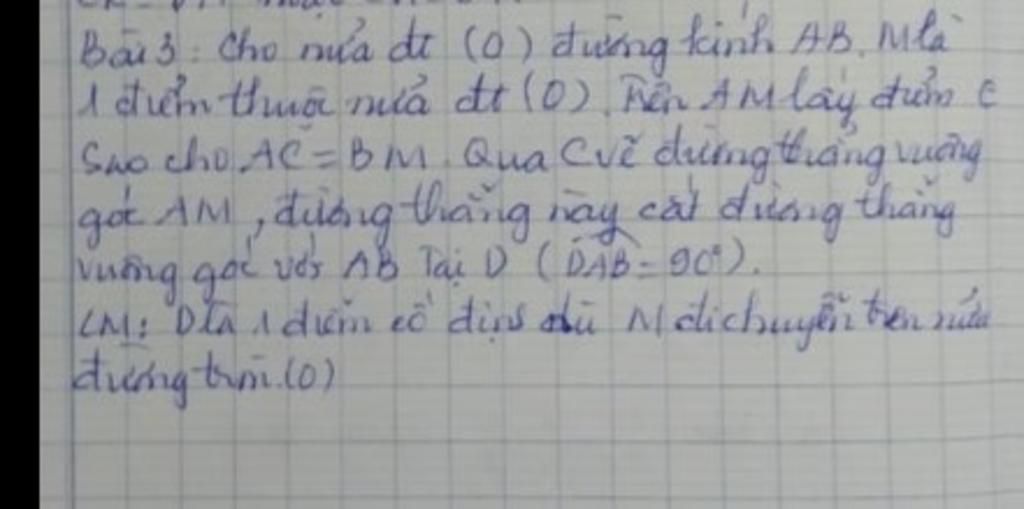 Bài 3: Cho nửa đt (O) đường kính AB. M là
1 điểm thuộc nửa đt (O). Trên AM lấy điểm C
Sao cho AC = BM. Qua C vẽ đường thẳng vuông
góc AM, đường thẳng này cắt đường thẳng
vuông góc với AB Tại D (DAB = 90°).
CM: D là 1 điểm cố định dù M di chuyển trên nửa
đường tròn (O)